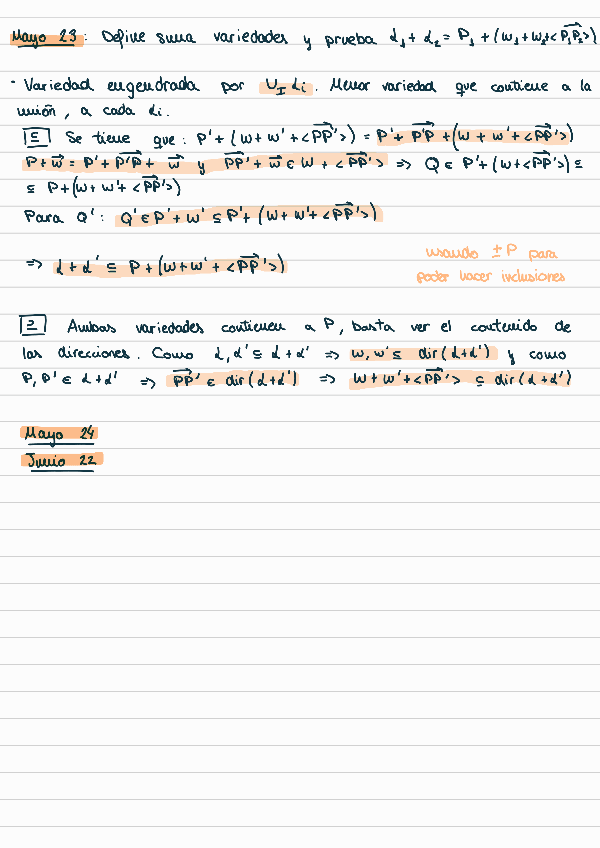 Mayo 23: Define suma variedades y prueba L₁ + L₂ = P₁ + (W₁ + W₂ + <P₁P₂>)
· Variedad engendrada por U_I Li. Menor variedad que contiene a la
unión, a cada Li.
⊆ Se tiene que: P' + (W + W' + <PP'>) = P' + P'P + (W + W' + <PP'>)
P + w = P' + P'P + w y PP' + w ∈ W + <PP'> => Q ∈ P' + (W + <PP'>) ⊆
⊆ P + (W + W' + <PP'>)
Para Q': Q' ∈ P' + W' ⊆ P' + (W + W' + <PP'>)
=> L + L' ⊆ P + (W + W' + <PP'>)
usando ± P para
poder hacer inclusiones
⊇ Ambas variedades contienen a P, basta ver el contenido de
las direcciones. Como L, L' ⊆ L + L' => W, W' ⊆ dir(L + L') y como
P, P' ∈ L + L' => PP' ∈ dir(L + L') => W + W' + <PP'> ⊆ dir(L + L')
Mayo 24
Junio 22